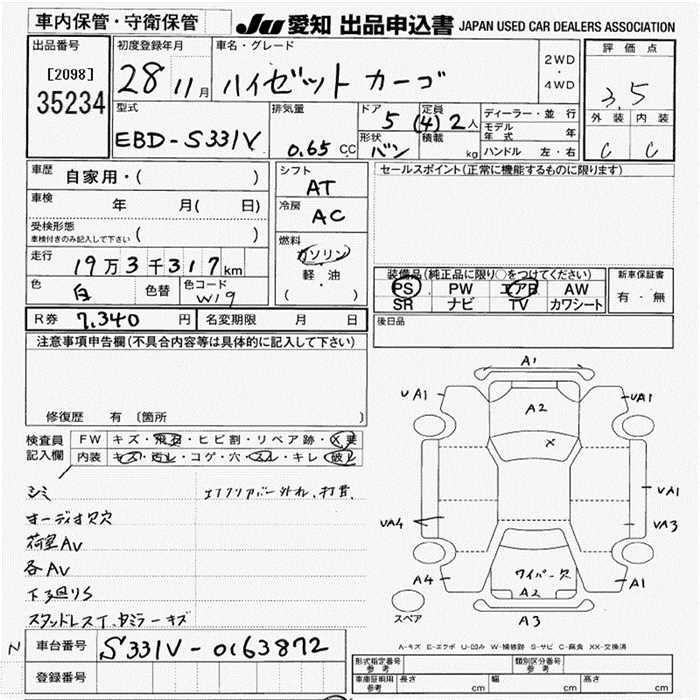 車内保管・守衛保管
JU 愛知 出品申込書 JAPAN USED CAR DEALERS ASSOCIATION
出品番号
[2098]
35234
初度登録年月
28 11月
車名・グレード
ハイゼット カーゴ
2WD
・
4WD
評価点
3.5
外装 内装
C C
型式
EBD-S331V
排気量
0.65 CC
ドア 5
定員 (4) 2人
形状 バン
積載 kg
ディーラー・並行
モデル年式 年
ハンドル 左・右
車歴 自家用・( )
車検 年 月( 日)
受検形態
車検付きのみ記入して下さい ( )
走行 19万3千317km
色 白 色替 色コード W19
R券 7,340円 名変期限 月 日
シフト
AT
冷房
AC
燃料
ガソリン
軽・油
( )
セールスポイント(正常に機能するものに限ります)
装備品(純正品に限り○をつけてください)
PS PW エアB AW
SR ナビ TV カワシート
新車保証書
有・無
後日品
注意事項申告欄(不具合内容等は具体的に記入して下さい)
修復歴 有 〔箇所 〕
検査員記入欄
FW キズ・飛石・ヒビ割・リペア跡・X要
内装 キズ・汚レ・コゲ・穴・スレ・キレ・破レ
シミ
オーディオ欠穴
荷室AV
各AV
下廻りS
エアクリアバー外れ、打音
車台番号 S331V-0163872
N
登録番号
A1
UA1
UA1
A2
X
VA1
VA4
VA3
A4
A1
ワイパー欠
A2
A3
スペア
A-キズ E-エクボ U-凹み W-補修跡 S-サビ C-腐食 XX-交換済
形式指定番号 参考
類別区分番号 参考
車庫証明用 参考 長さ cm 幅 cm 高さ cm